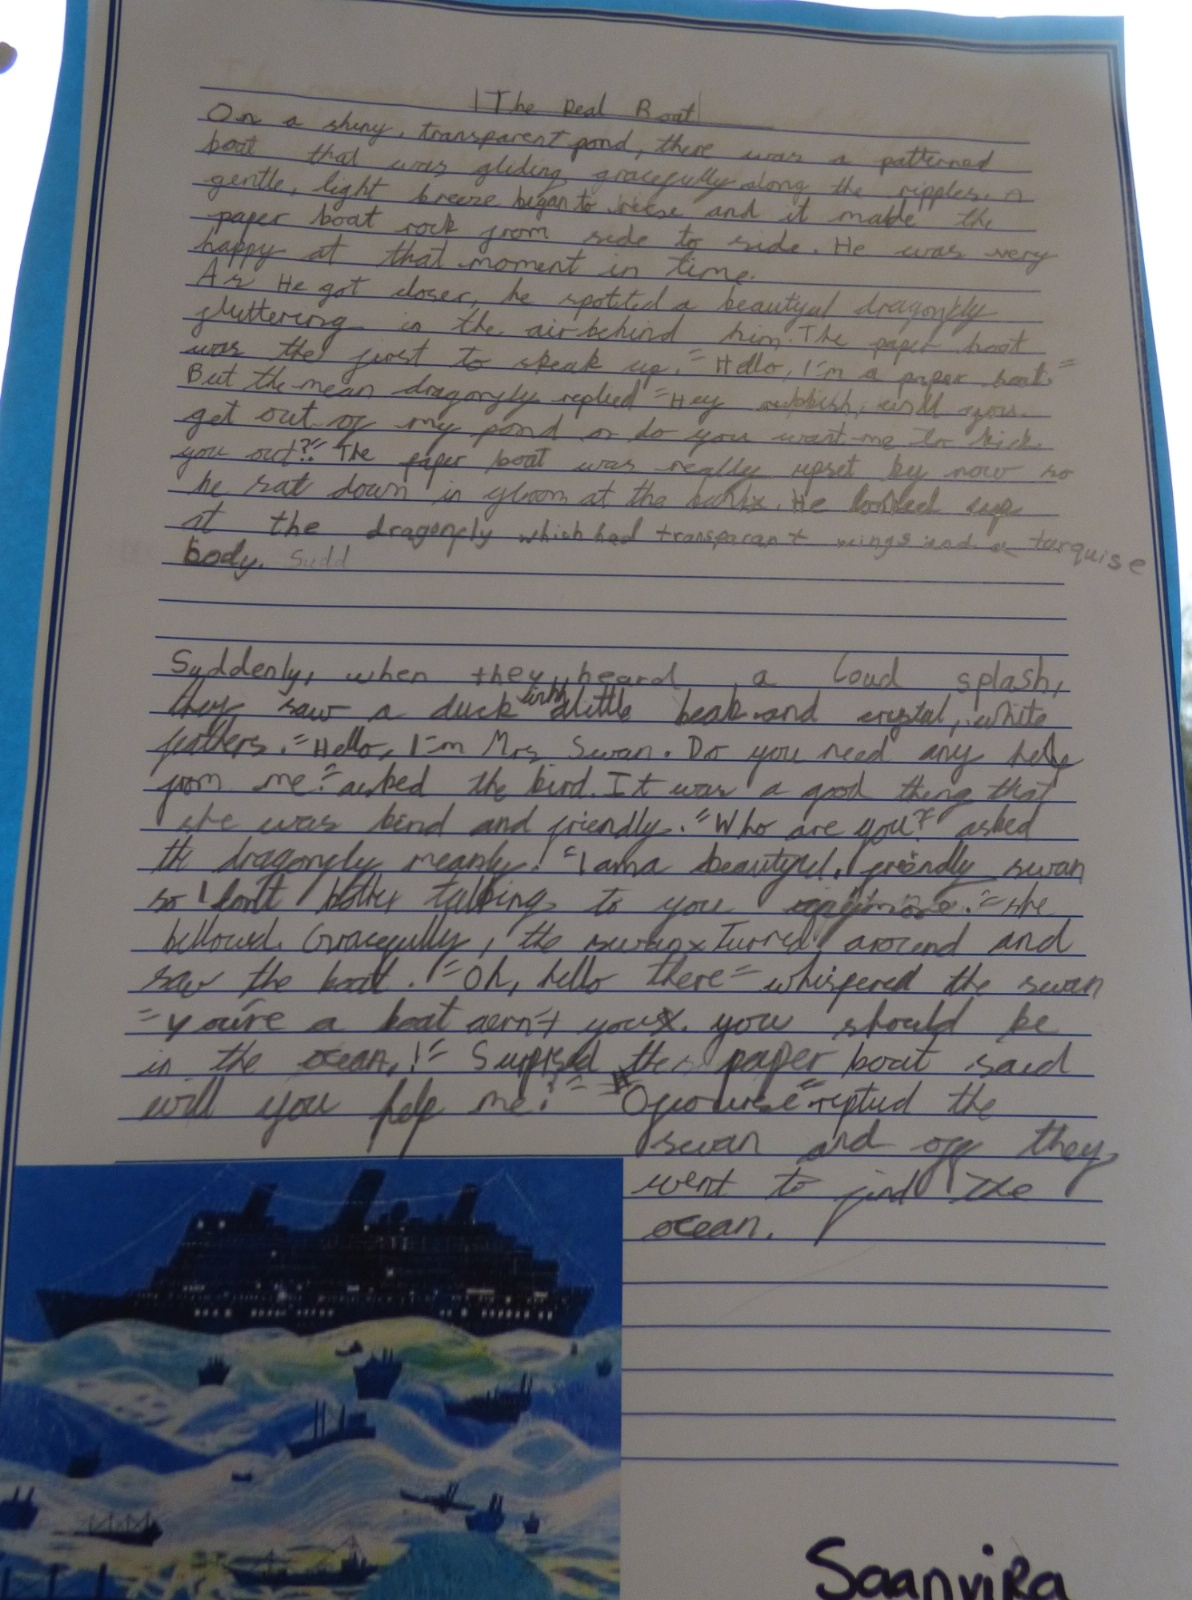 The Real Boat
On a shiny, transparent pond, there was a patterned
boat that was gliding gracefully along the ripples. A
gentle, light breeze began to and it made the
paper boat rock from side to side. He was very
happy at that moment in time.
As He got closer, he spotted a beautyful dragonfly
fluttering in the air behind him. The paper boat
was the first to speak up. "Hello, I'm a paper boat."
But the mean dragonfly replied "Hey rubbish,
get out of my pond or do you want me to kick
you out?" The paper boat was really upset by now so
he sat down in gloom at the bank. He looked up
at the dragonfly which had transparant wings and a tarquise
body. Sudd
Suddenly, when they heard a loud splash,
they saw a duck with a little beak and crystal, white
feathers. "Hello, I'm Mrs Swan. Do you need any help
from me?" asked the bird. It was a good thing that
she was kind and friendly. "Who are you?" asked
the dragonfly meanly! "I am a beautyful, friendly swan
so I don't bother talking to you anymore." she
bellowd. Gracefully, the swan Turned around and
saw the boat. "Oh, hello there" whispered the swan
"you're a boat aern't you. you should be
in the ocean!" Suprised the paper boat said
will you help me?" "Ofcourse" replied the
swan and off they
went to find the
ocean.
Saanvika